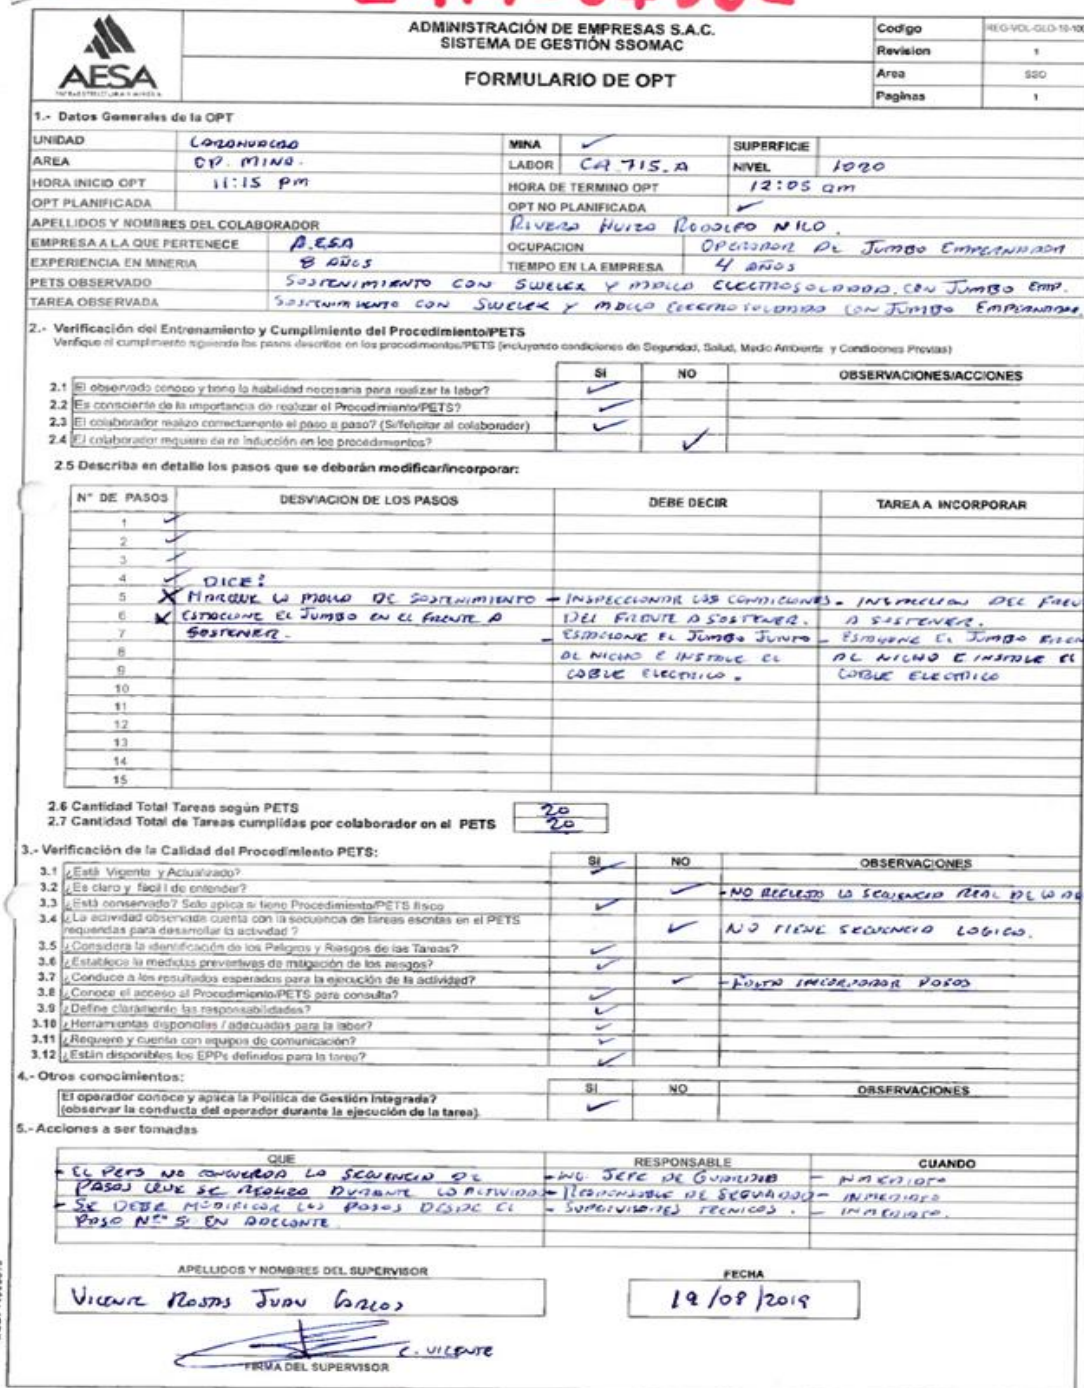 ADMINISTRACIÓN DE EMPRESAS S.A.C.
SISTEMA DE GESTIÓN SSOMAC
FORMULARIO DE OPT
AESA
Codigo REG-VOL-GLO-10-100
Revision 1
Area SSO
Paginas 1
1.- Datos Generales de la OPT
UNIDAD MINA ✓ SUPERFICIE
AREA OP. MINA. LABOR CA 715.A NIVEL 1020
HORA INICIO OPT 11:15 pm HORA DE TERMINO OPT 12:05 am
OPT PLANIFICADA OPT NO PLANIFICADA ✓
APELLIDOS Y NOMBRES DEL COLABORADOR RIVERA HUIZA RODOLFO NILO.
EMPRESA A LA QUE PERTENECE A.ESA OCUPACION OPERADOR DE JUMBO EMPERNADOR
EXPERIENCIA EN MINERIA 8 AÑOS TIEMPO EN LA EMPRESA 4 AÑOS
PETS OBSERVADO SOSTENIMIENTO CON SWELEX Y MALLA ELECTROSOLDADA. CON JUMBO EMP.
TAREA OBSERVADA SOSTENIMIENTO CON SWELEX Y MALLA ELECTROSOLDADA CON JUMBO EMPERNADOR.
2.- Verificación del Entrenamiento y Cumplimiento del Procedimiento/PETS
Verifique el cumplimiento siguiendo los pasos descritos en los procedimientos/PETS (incluyando condiciones de Seguridad, Salud, Medio Ambiente y Condiciones Previas)
SI NO OBSERVACIONES/ACCIONES
2.1 El observado conoce y tiene la habilidad necesaria para realizar la labor? ✓
2.2 Es consciente de la importancia de realizar el Procedimiento/PETS? ✓
2.3 El colaborador realizo correctamente el paso a paso? (Si/felicitar al colaborador) ✓
2.4 El colaborador requiere de re inducción en los procedimientos? ✓
2.5 Describa en detalle los pasos que se deberán modificar/incorporar:
N° DE PASOS DESVIACION DE LOS PASOS DEBE DECIR TAREA A INCORPORAR
1 ✓
2 ✓
3 ✓
4 ✓ DICE:
5 X MARQUE LA MALLA DE SOSTENIMIENTO - INSPECCIONAR LAS CONDICIONES - INSPECCION DEL
6 X ESTACIONE EL JUMBO EN EL FRENTE A DEL FRENTE A SOSTENER. A SOSTENER.
7 SOSTENER. - ESTACIONE EL JUMBO JUNTO - ESTACIONE EL JUMBO
8 AL NICHO E INSTALE EL AL NICHO E INSTALE EL
9 CABLE ELECTRICO. CABLE ELECTRICO
10
11
12
13
14
15
2.6 Cantidad Total Tareas según PETS 20
2.7 Cantidad Total de Tareas cumplidas por colaborador en el PETS 20
3.- Verificación de la Calidad del Procedimiento PETS:
SI NO OBSERVACIONES
3.1 ¿Está Vigente y Actualizado? ✓
3.2 ¿Es claro y fácil de entender? ✓ - NO REFLEJA LA SECUENCIA REAL DE LA
3.3 ¿Está conservado? Solo aplica si tiene Procedimiento/PETS físico ✓
3.4 ¿La actividad observada cuenta con la secuencia de tareas escritas en el PETS
requeridas para desarrollar la actividad ? ✓ NO TIENE SECUENCIA LOGICA.
3.5 ¿Considera la identificación de los Peligros y Riesgos de las Tareas? ✓
3.6 ¿Establece la medidas preventivas de mitigación de los riesgos? ✓
3.7 ¿Conduce a los resultados esperados para la ejecución de la actividad? ✓ - FALTA INCORPORAR PASOS
3.8 ¿Conoce el acceso al Procedimiento/PETS para consulta? ✓
3.9 ¿Define claramente las responsabilidades? ✓
3.10 ¿Herramientas disponibles / adecuadas para la labor? ✓
3.11 ¿Requiere y cuenta con equipos de comunicación? ✓
3.12 ¿Están disponibles los EPPs definidos para la tarea? ✓
4.- Otros conocimientos:
SI NO OBSERVACIONES
El operador conoce y aplica la Politica de Gestión Integrada? ✓
(observar la conducta del operador durante la ejecución de la tarea).
5.- Acciones a ser tomadas
QUE RESPONSABLE CUANDO
- EL PETS NO CONCUERDA LA SECUENCIA DE - ING. JEFE DE GUARDIA - INMEDIATO
PASOS QUE SE REALIZA DURANTE LA ACTIVIDAD - RESPONSABLE DE SEGURIDAD - INMEDIATO
- SE DEBE MODIFICAR LOS PASOS DESDE EL - SUPERVISORES TECNICOS. - INMEDIATO.
PASO N° 5 EN ADELANTE.
APELLIDOS Y NOMBRES DEL SUPERVISOR FECHA
VICENTE ROJAS JUAN CARLOS 19/08/2019
C. VICENTE
FIRMA DEL SUPERVISOR